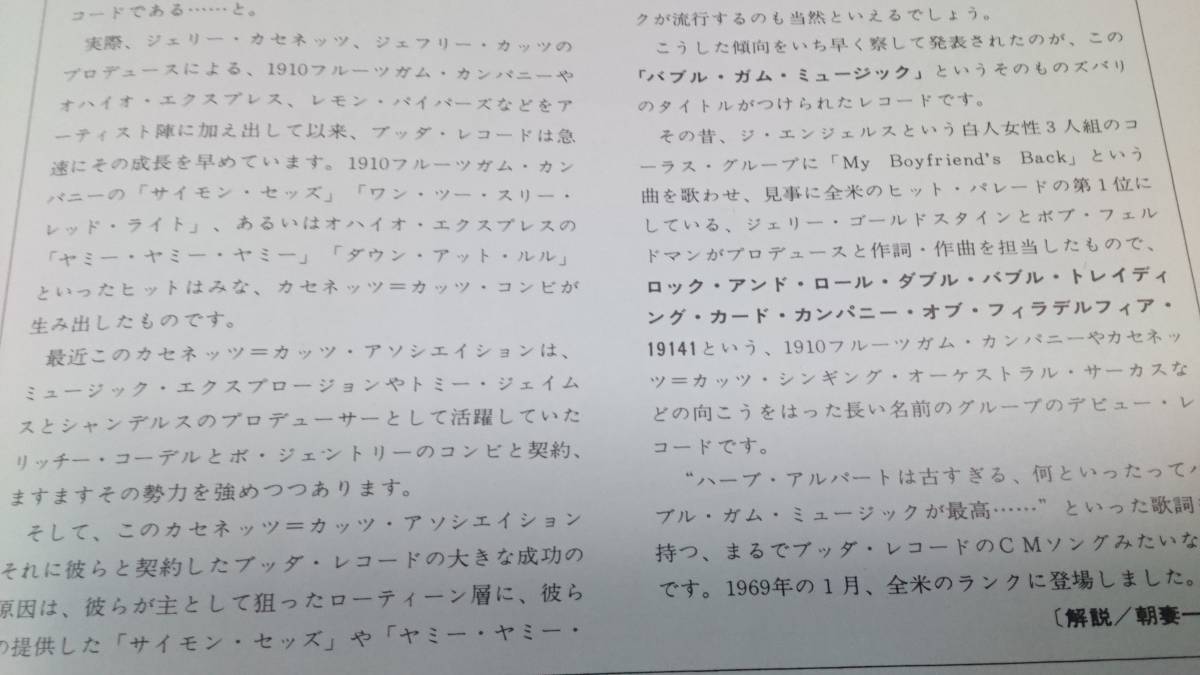 コードである……と。
実際、ジェリー・カセネッツ、ジェフリー・カッツの
プロデュースによる、1910フルーツガム・カンパニーや
オハイオ・エクスプレス、レモン・パイパーズなどをア
ーティスト陣に加え出して以来、ブッダ・レコードは急
速にその成長を早めています。1910フルーツガム・カン
パニーの「サイモン・セッズ」「ワン・ツー・スリー・
レッド・ライト」、あるいはオハイオ・エクスプレスの
「ヤミー・ヤミー・ヤミー」「ダウン・アット・ルル」
といったヒットはみな、カセネッツ＝カッツ・コンビが
生み出したものです。
最近このカセネッツ＝カッツ・アソシエイションは、
ミュージック・エクスプロージョンやトミー・ジェイム
スとシャンデルスのプロデューサーとして活躍していた
リッチー・コーデルとボ・ジェントリーのコンビと契約、
ますますその勢力を強めつつあります。
そして、このカセネッツ＝カッツ・アソシエイション
それに彼らと契約したブッダ・レコードの大きな成功の
原因は、彼らが主として狙ったローティーン層に、彼ら
の提供した「サイモン・セッズ」や「ヤミー・ヤミー・
クが流行するのも当然といえるでしょう。
こうした傾向をいち早く察して発表されたのが、この
「バブル・ガム・ミュージック」というそのものズバリ
のタイトルがつけられたレコードです。
その昔、ジ・エンジェルスという白人女性3人組のコ
ーラス・グループに「My Boyfriend's Back」という
曲を歌わせ、見事に全米のヒット・パレードの第1位に
している、ジェリー・ゴールドスタインとボブ・フェル
ドマンがプロデュースと作詞・作曲を担当したもので、
ロック・アンド・ロール・ダブル・バブル・トレイディ
ング・カード・カンパニー・オブ・フィラデルフィア・
19141という、1910フルーツガム・カンパニーやカセネッ
ツ＝カッツ・シンギング・オーケストラル・サーカスな
どの向こうをはった長い名前のグループのデビュー・レ
コードです。
“ハーブ・アルパートは古すぎる、何といったってバ
ブル・ガム・ミュージックが最高……”といった歌詞
持つ、まるでブッダ・レコードのCMソングみたいな
です。1969年の1月、全米のランクに登場しました。
〔解説／朝妻一